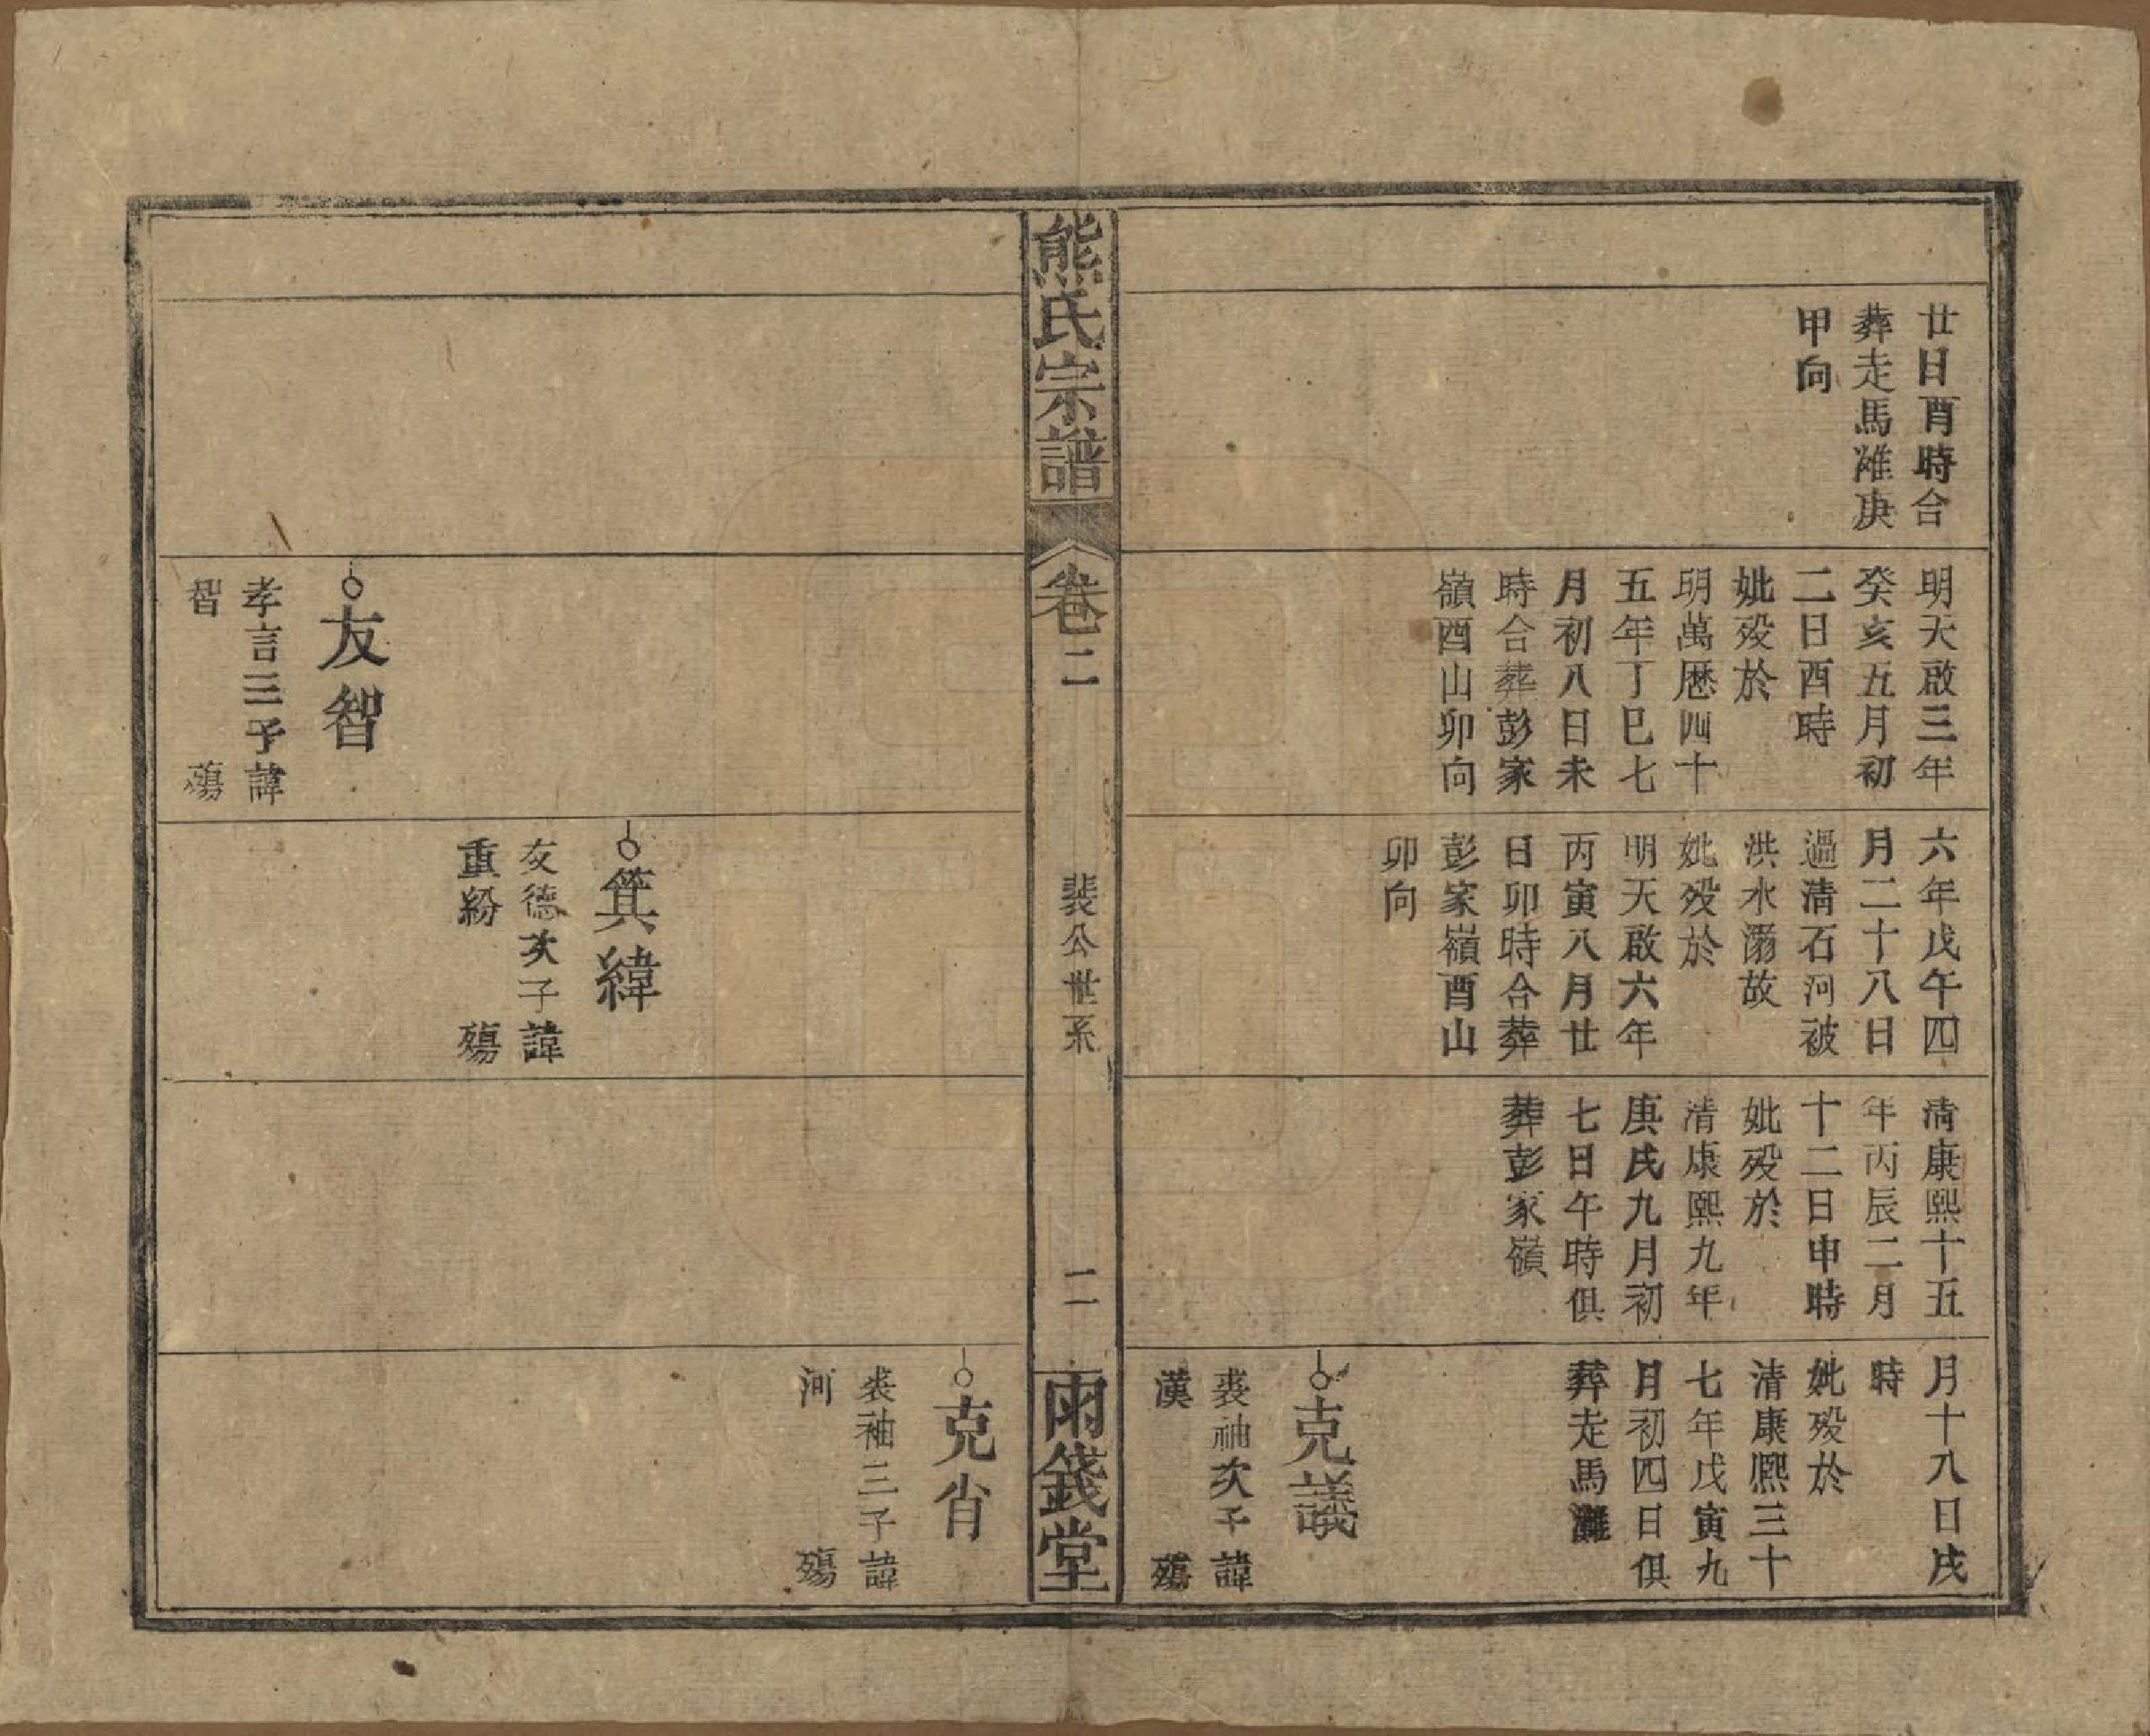 廿日酉時合
葬走馬灘庚
甲向
明天啟三年
癸亥五月初
二日酉時
妣殁於
明萬厯四十
五年丁巳七
月初八日未
時合葬彭家
嶺酉山卯向
六年戊午四
月二十八日
過清石河被
洪水溺故
妣殁於
明天啟六年
丙寅八月廿
日卯時合葬
彭家嶺酉山
卯向
清康熙十五
年丙辰二月
十二日申時
妣殁於
清康熙九年
庚戌九月初
七日午時俱
葬彭家嶺
月十八日戌
時
妣殁於
清康熙三十
七年戊寅九
月初四日俱
葬走馬灘
克議
裘袖次子諱
漢 殤
熊氏宗譜
卷二
裴公世系
二
雨錢堂
友智
孝言三子諱
智 殤
箕緯
友德次子諱
重紛 殤
克省
裘袖三子諱
河 殤